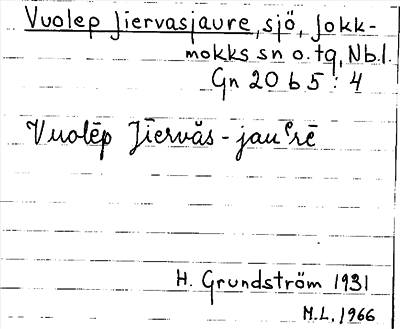 Vuolep Jiervasjaure, sjö, Jokk-
mokks sn o. tg, Nb.l.
Gn 20 b 5 : 4
Vuolēp Jīervăs - jauᵉrē
H. Grundström 1931
M.L. 1966